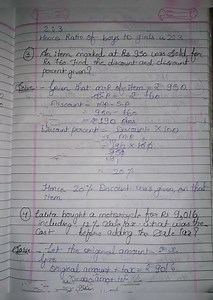 2:3
Hence Ratio of boys to girls = 2:3
3 An item marked at Rs 950 was sold for
Rs 760. Find the discount and discount
percent given?
Soln:- Given that MP of item = ₹ 950
SP = ₹ 760
Discount = MP - SP
= 950 - 760
= ₹ 190
Discount percent = Discount × 100
MP
= 190 × 100
950
= 20 %
Hence 20% Discount was given on that
Item
4 bought a motorcycle for Rs
including 12% Sale tax. What was the
Cost before adding the Sale Tax?
Soln:- Let the original amount = ₹
original amount + tax = ₹